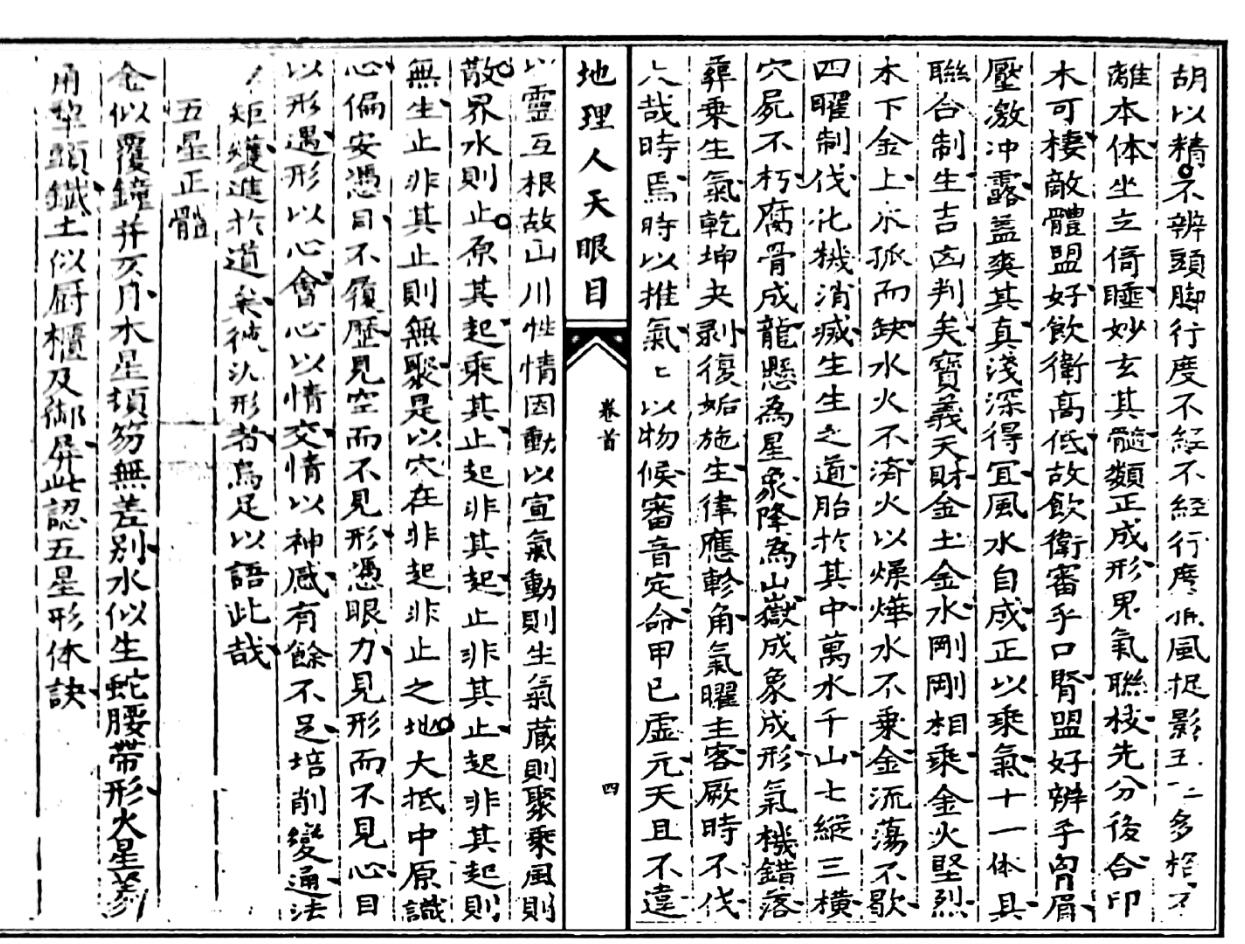 胡以精不辨頭脚行度不經不經行度 風捉影五 多 不
離本体坐立倚睡妙玄其髓類正成形界氣聯棱先分後合印
木可棲敵體盟好飲衛高低故飲衛審乎口腎盟好辨乎胷眉
壓激冲露盖爽其真淺深得宜風水自成正以乘氣十一体具
聯台制生吉凶判矣寶義天財金土金水剛剛相乘金火堅烈
木下金上水孤而缺水火不济火以爆燁水不乘金流蕩不歇
四曜制伐化機消滅生生之道胎於其中萬水千山七縱三橫
穴屍不朽腐骨成龍懸為星象降為山嶽成象成形氣機錯落
彝乘生氣乾坤夬剥復姤施生律應軫角氣曜主客厥時不伐
大哉時焉時以推氣〻以物候審音定命甲已虛元天且不違
地理人天眼目
卷首
四
以靈互根故山川性情因動以宣氣動則生氣蔵則聚乘風則
散界水則止原其起乘其止起非其起止非其止起非其起則
無生止非其止則無聚是以穴在非起非止之地大抵中原識
心偏安憑目不履歷見空而不見形憑眼力見形而不見心目
以形遇形以心會心以情交情以神感有餘不足培削變通法
矩矱進於道矣彼泥形者烏足以語此哉
五星正體
金似覆鐘并反月木星頓笏無差别水似生蛇腰帶形火星
犂頭鐵土似厨櫃及御屏此認五星形体訣